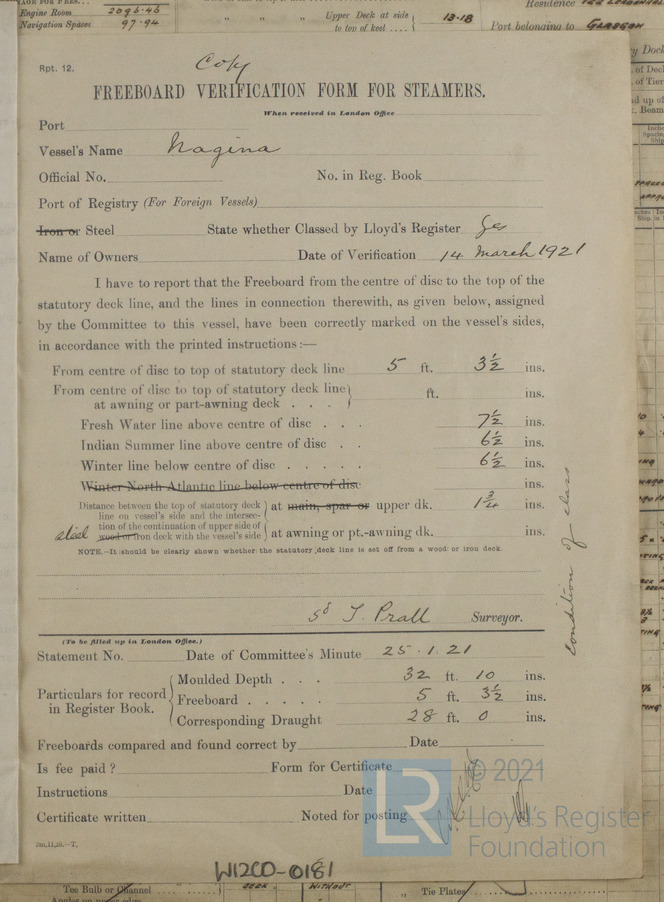 Engine Room 2096.46
Navigation Spaces 97.94
Upper Deck at side
to top of keel .... 13.18
Residence
Port belonging to Glasgow
Rpt. 12.
Copy
FREEBOARD VERIFICATION FORM FOR STEAMERS.
When received in London Office
Port
Vessel's Name Nagina
Official No. No. in Reg. Book
Port of Registry (For Foreign Vessels)
Iron or Steel State whether Classed by Lloyd's Register Yes
Name of Owners Date of Verification 14 March 1921
I have to report that the Freeboard from the centre of disc to the top of the
statutory deck line, and the lines in connection therewith, as given below, assigned
by the Committee to this vessel, have been correctly marked on the vessel's sides,
in accordance with the printed instructions :—
From centre of disc to top of statutory deck line 5 ft. 3½ ins.
From centre of disc to top of statutory deck line
at awning or part-awning deck . . . ft. ins.
Fresh Water line above centre of disc . . . 7½ ins.
Indian Summer line above centre of disc . . 6½ ins.
Winter line below centre of disc . . . . . 6½ ins.
Winter North Atlantic line below centre of disc ins.
Distance between the top of statutory deck
line on vessel's side and the intersec-
tion of the continuation of upper side of
steel wood or iron deck with the vessel's side
at main, spar or upper dk. 1¾ ins.
at awning or pt.-awning dk. ins.
NOTE.—It should be clearly shown whether the statutory deck line is set off from a wood or iron deck.
condition of class
sd J. Prall Surveyor.
(To be filled up in London Office.)
Statement No. Date of Committee's Minute 25.1.21
Particulars for record
in Register Book.
Moulded Depth . . . 32 ft. 10 ins.
Freeboard . . . . . 5 ft. 3½ ins.
Corresponding Draught 28 ft. 0 ins.
Freeboards compared and found correct by Date
Is fee paid ? Form for Certificate
Instructions Date
Certificate written Noted for posting
2m,11,20.—T.
© 2021
LR Lloyd's Register
Foundation
W1200-0181
Tee Bulb or Channel
Tie Plates